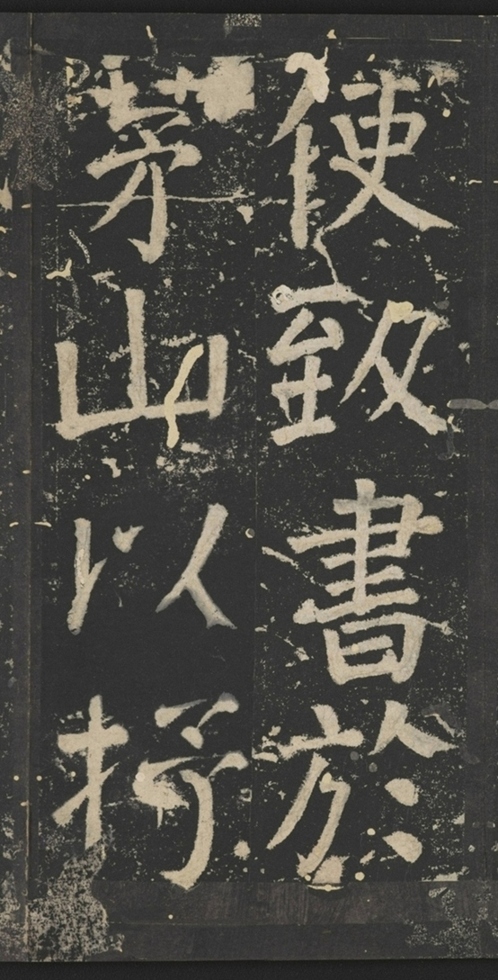 使致書於
茅山以抒